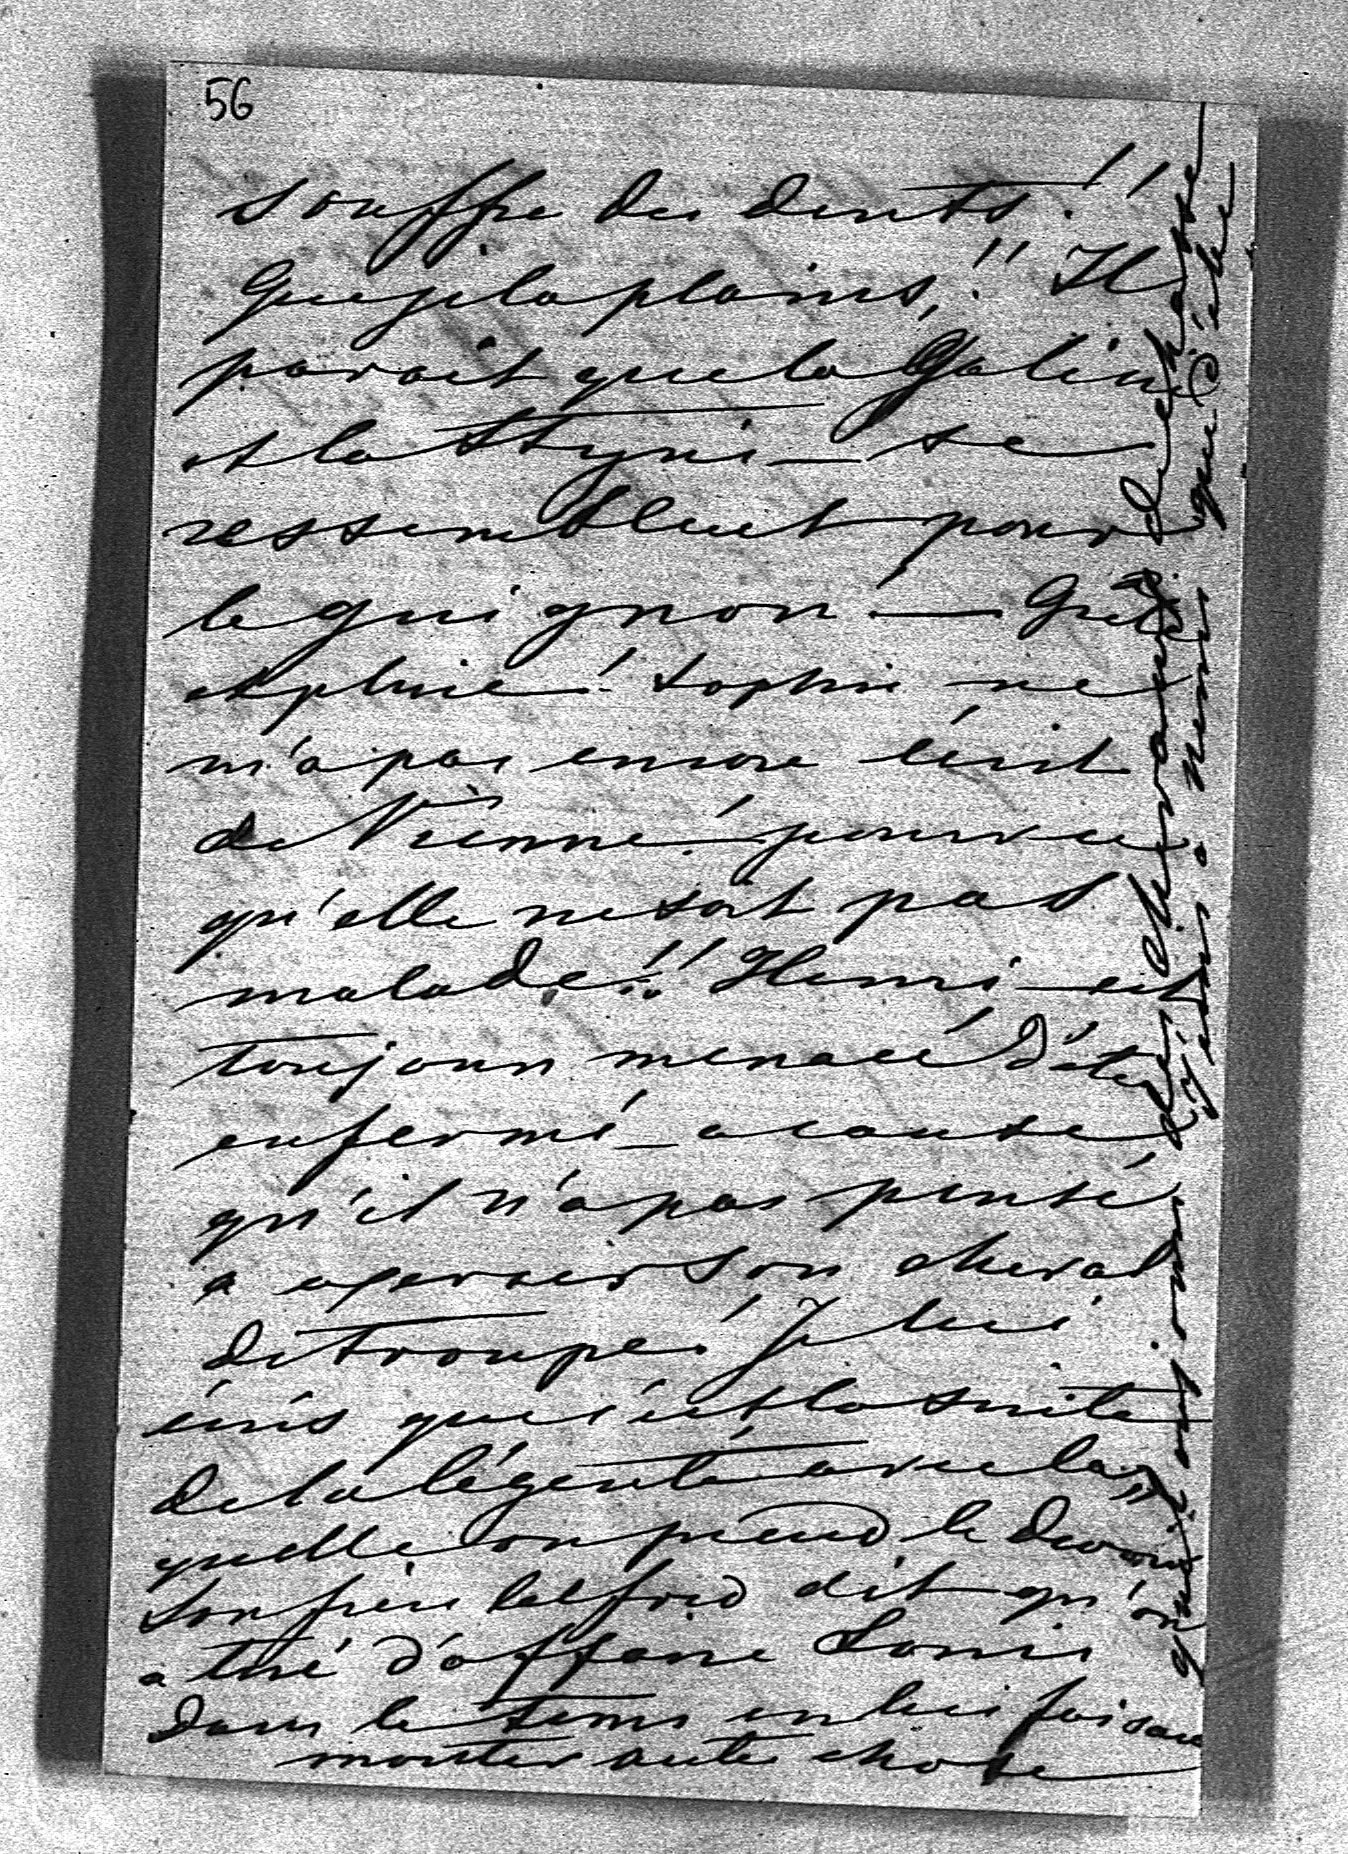 56
souffre des dents!!
que je la plains!! Il
parait que la Galin
et la Styni — se
ressemblent pour
le guignon — Grete
est plus ! Sophie ne
m'a pas encore écrit
de Vienne! pourvu
qu'elle ne soit pas
malade!! Henri est
toujours menacé d'être
enfermé — a cause
qu'il n'a pas pensé
a exercer son cheval
de troupe! Je lui
écris que c'est la suite
de la légèreté avec la"
quelle on prend le devoir
Son frère Alfred dit qu'on
a tiré d'affaire Louis
dans le tems en lui faisant
monter autre chose
qui est
des chevaux de
que Henri